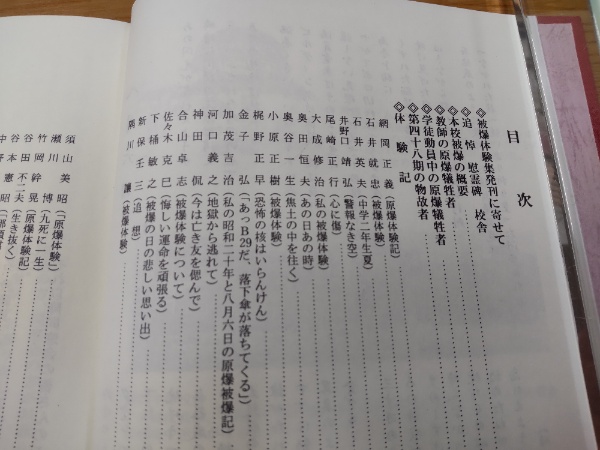 目次
◇被爆体験集発刊に寄せて
◇追悼 慰霊碑 校舎
◇本校被爆の概要
◇教師の原爆犠牲者
◇学徒動員中の原爆犠牲者
◇第四十八期の物故者
◇体験記
網岡正義(原爆体験記)
石井就忠(被爆体験)
石井英夫(中学二年生夏)
井野口靖弘(警報なき空)
尾崎正行(心に傷)
大成修治(私の被爆体験)
奥田恒夫(あの日あの時)
奥谷一生(焦土の中を往く)
小原正樹(被爆体験)
梶野正早(恐怖の核はいらんけん)
金子弘(「あっB29だ、落下傘が落ちてくる」)
加茂吉治(私の昭和二十年と八月六日の原爆被爆記)
河口義之(地獄から逃れて)
神田侃(今は亡き友を偲んで)
合山卓志(被爆体験について)
佐々木克巳(悔しい運命を頑張る)
下桶敏之(被爆の日の悲しい思い出)
新保壬三(追想)
隅川讓(被爆体験)
須山美昭(原爆体験)
瀬川博(九死に一生)
竹岡幹晃(原爆体験記)
谷田不二夫(生き抜く)
谷本憲昭